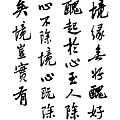 境緣無好醜好
醜起於心至人除
心不除境心既除
矣境豈實有